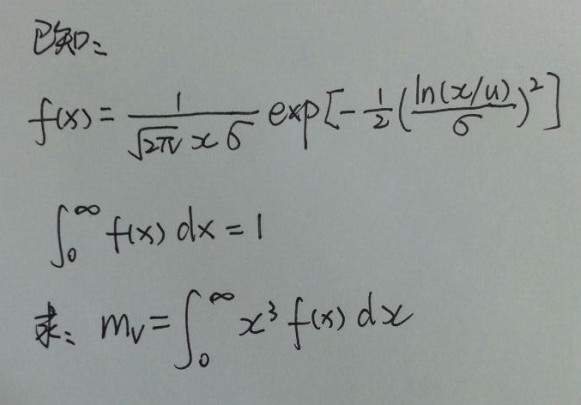 已知:
f(x) = 1/(√2π x σ) exp[-1/2 (ln(x/u)/σ)²]
∫₀^∞ f(x) dx = 1
求: mᵥ = ∫₀^∞ x³ f(x) dx